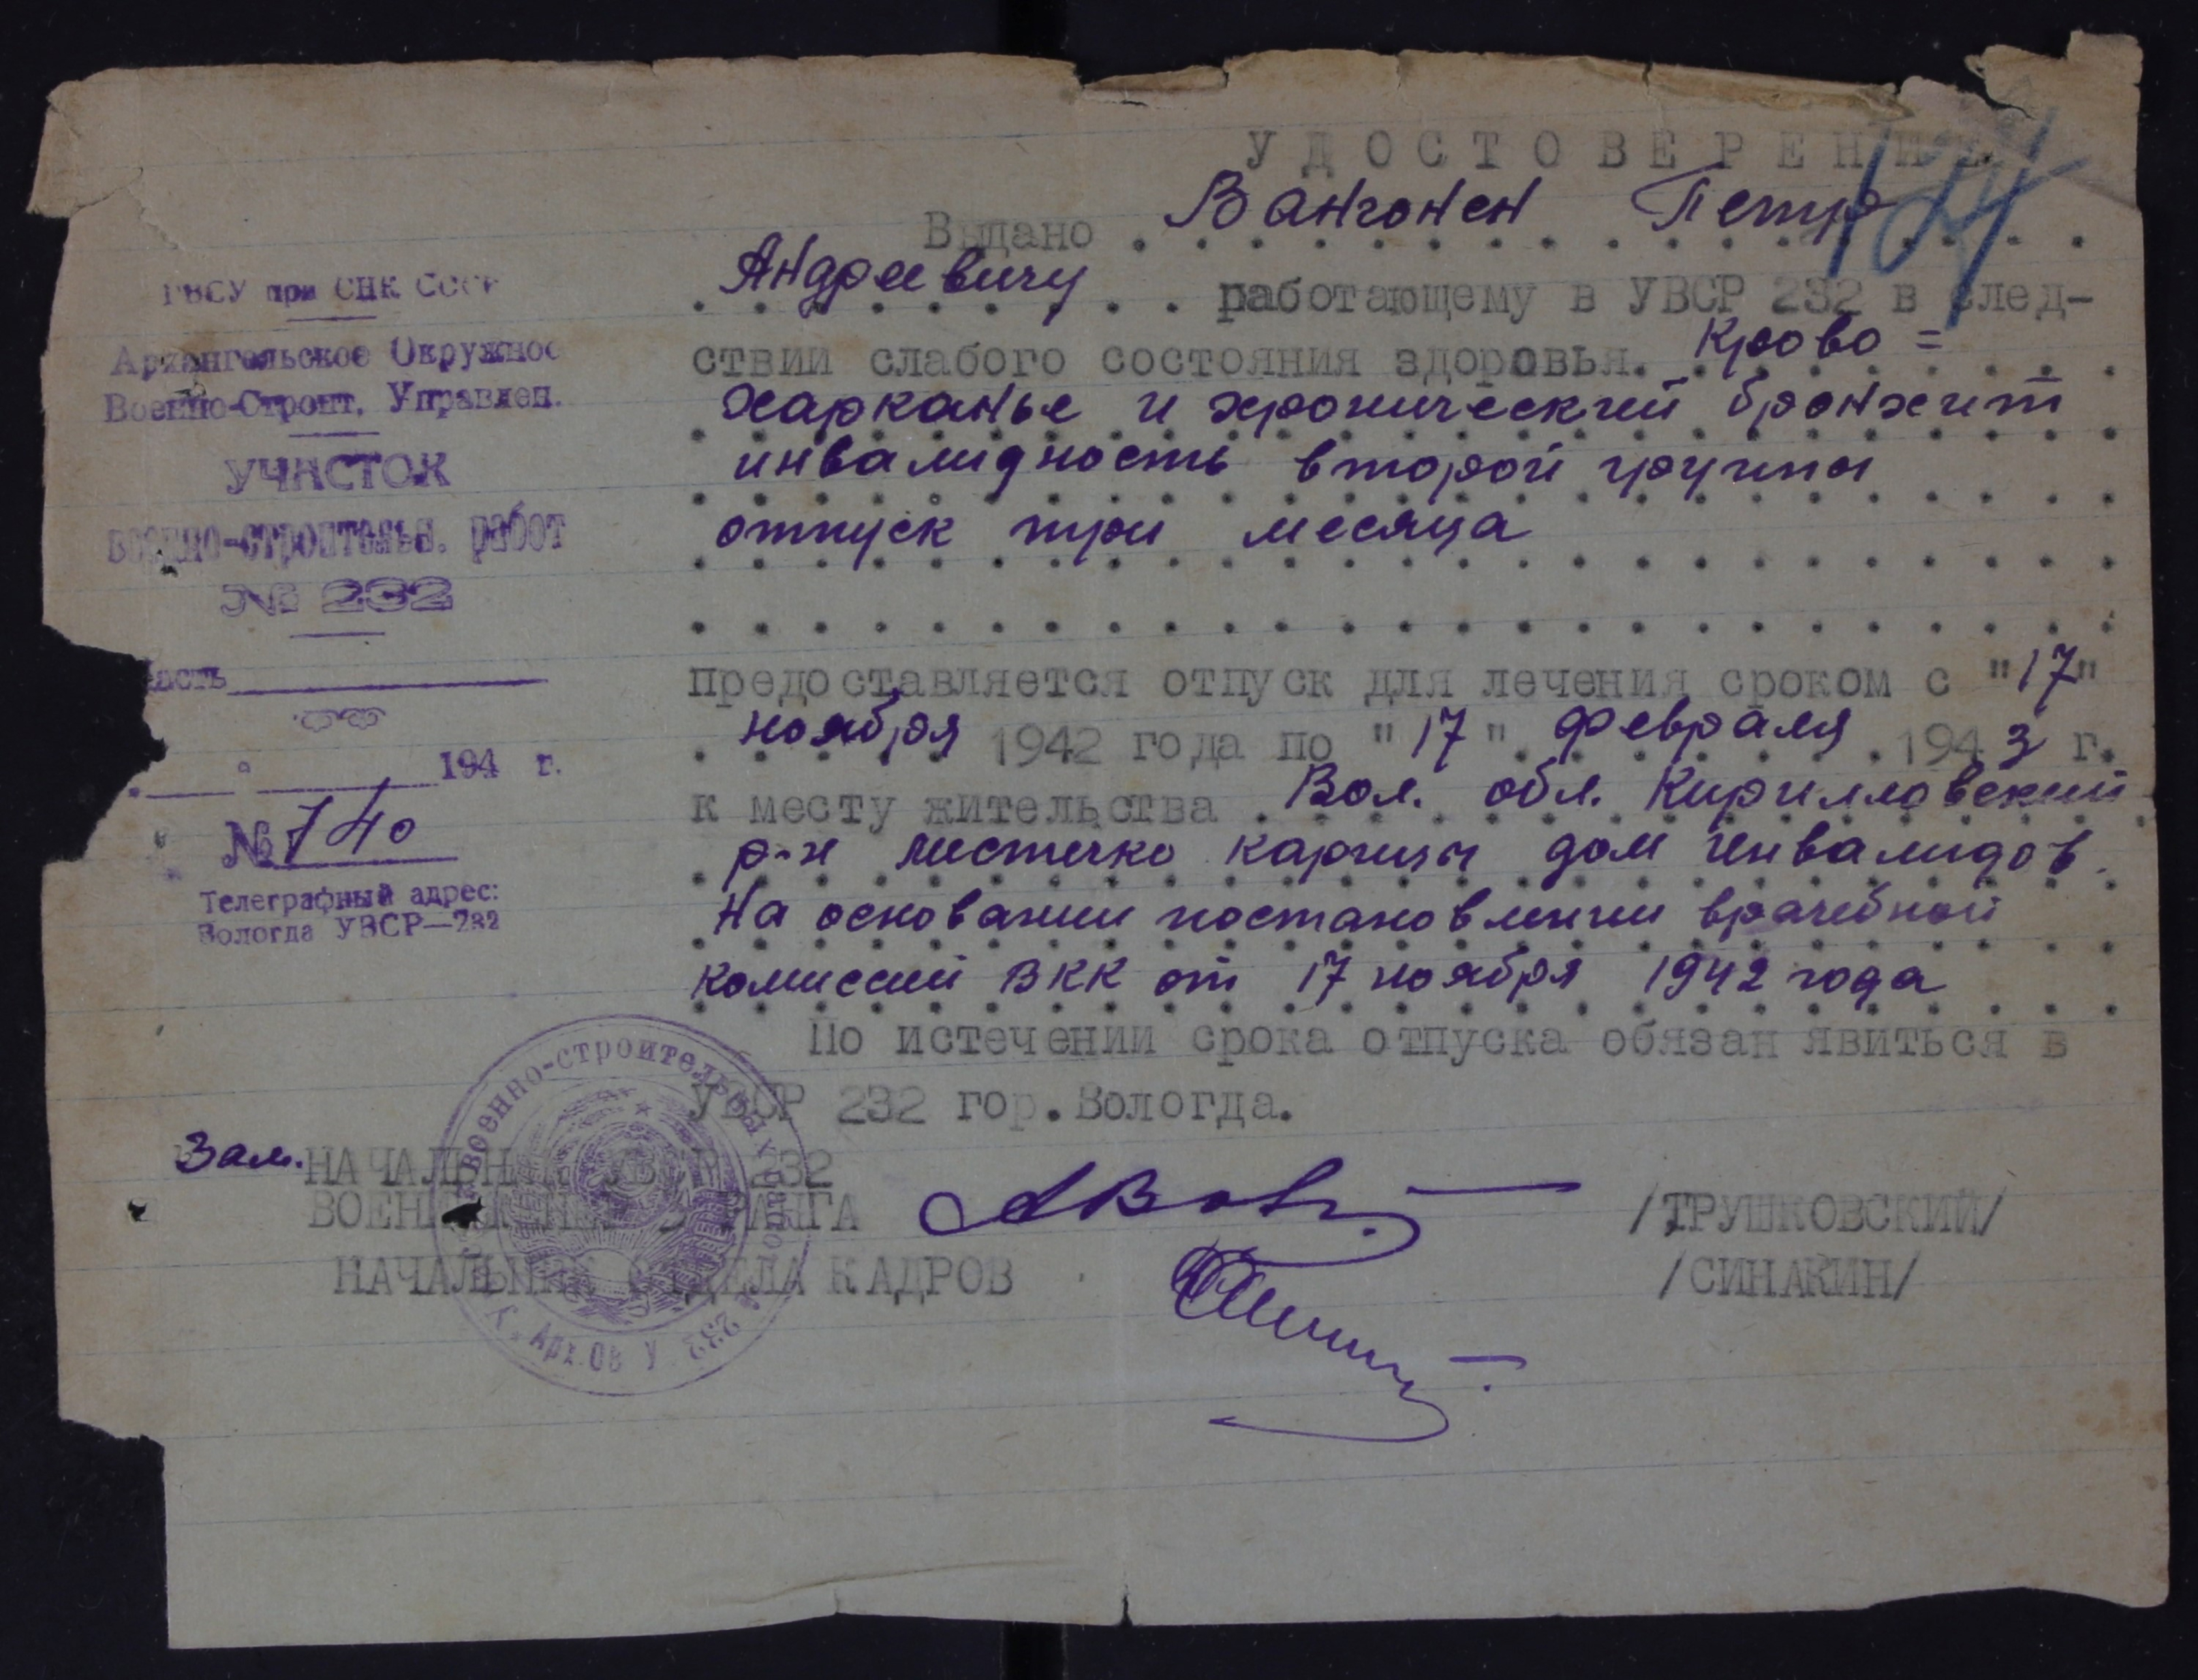 УДОСТОВЕРЕНИЕ
124
Выдано Вангонен Петр
Андреевичу работающему в УВСР 232 в след-
ствии слабого состояния здоровья. Крово=
харканье и хронический бронхит
инвалидность второй группы
отпуск три месяца
предоставляется отпуск для лечения сроком с "17"
ноября 1942 года по "17" февраля 1943 г.
к месту жительства Вол. обл. Кирилловский
р-н местечко Каргицы дом инвалидов.
На основании постановлении врачебной
комиссии ВКК от 17 ноября 1942 года
По истечении срока отпуска обязан явиться в
УВСР 232 гор. Вологда.
Зам. НАЧАЛЬНИК УВСР 232
ВОЕНИНЖЕНЕР 3 РАНГА /ТРУШКОВСКИЙ/
НАЧАЛЬНИК ОТДЕЛА КАДРОВ /СИНАКИН/
ГВСУ при СНК СССР
Архангельское Окружное
Военно-Строит. Управлен.
УЧАСТОК
военно-строительн. работ
№ 232
часть
194 г.
№ 740
Телеграфный адрес:
Вологда УВСР—232
военно-строительных работ № 232 Арх.ОВ У